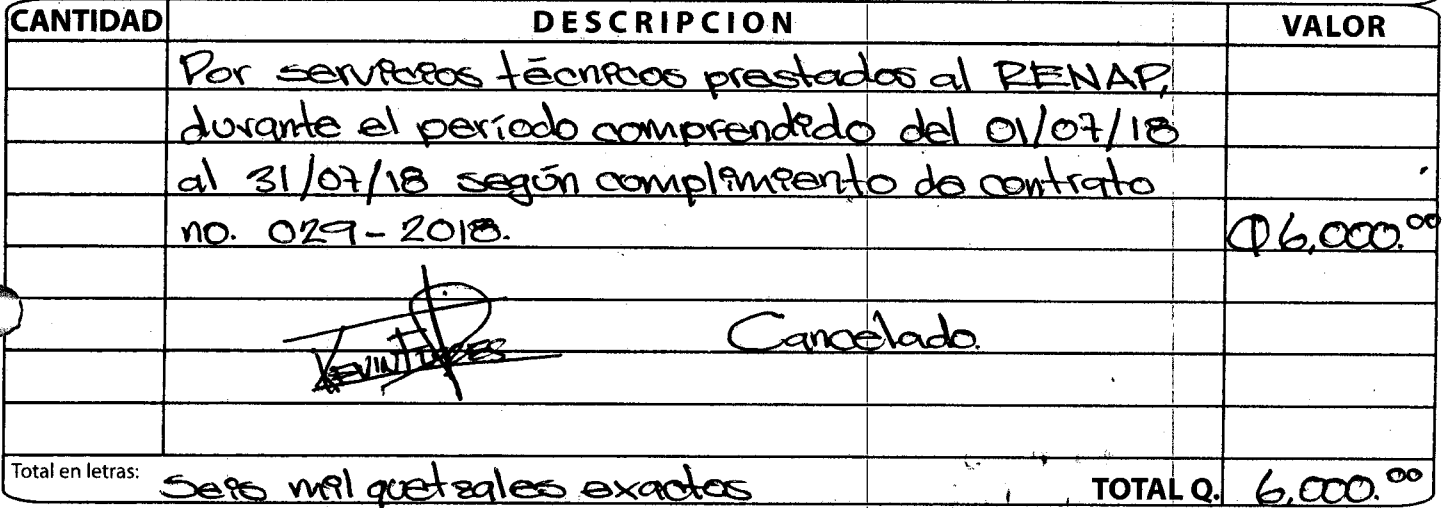 CANTIDAD DESCRIPCION VALOR
Por servicios técnicos prestados al RENAP,
durante el período comprendido del 01/07/18
al 31/07/18 según complimiento de contrato
no. 029-2018. Q6,000.00
Cancelado.
KEVIN
Total en letras: Seis mil quetzales exactos TOTAL Q. 6,000.00